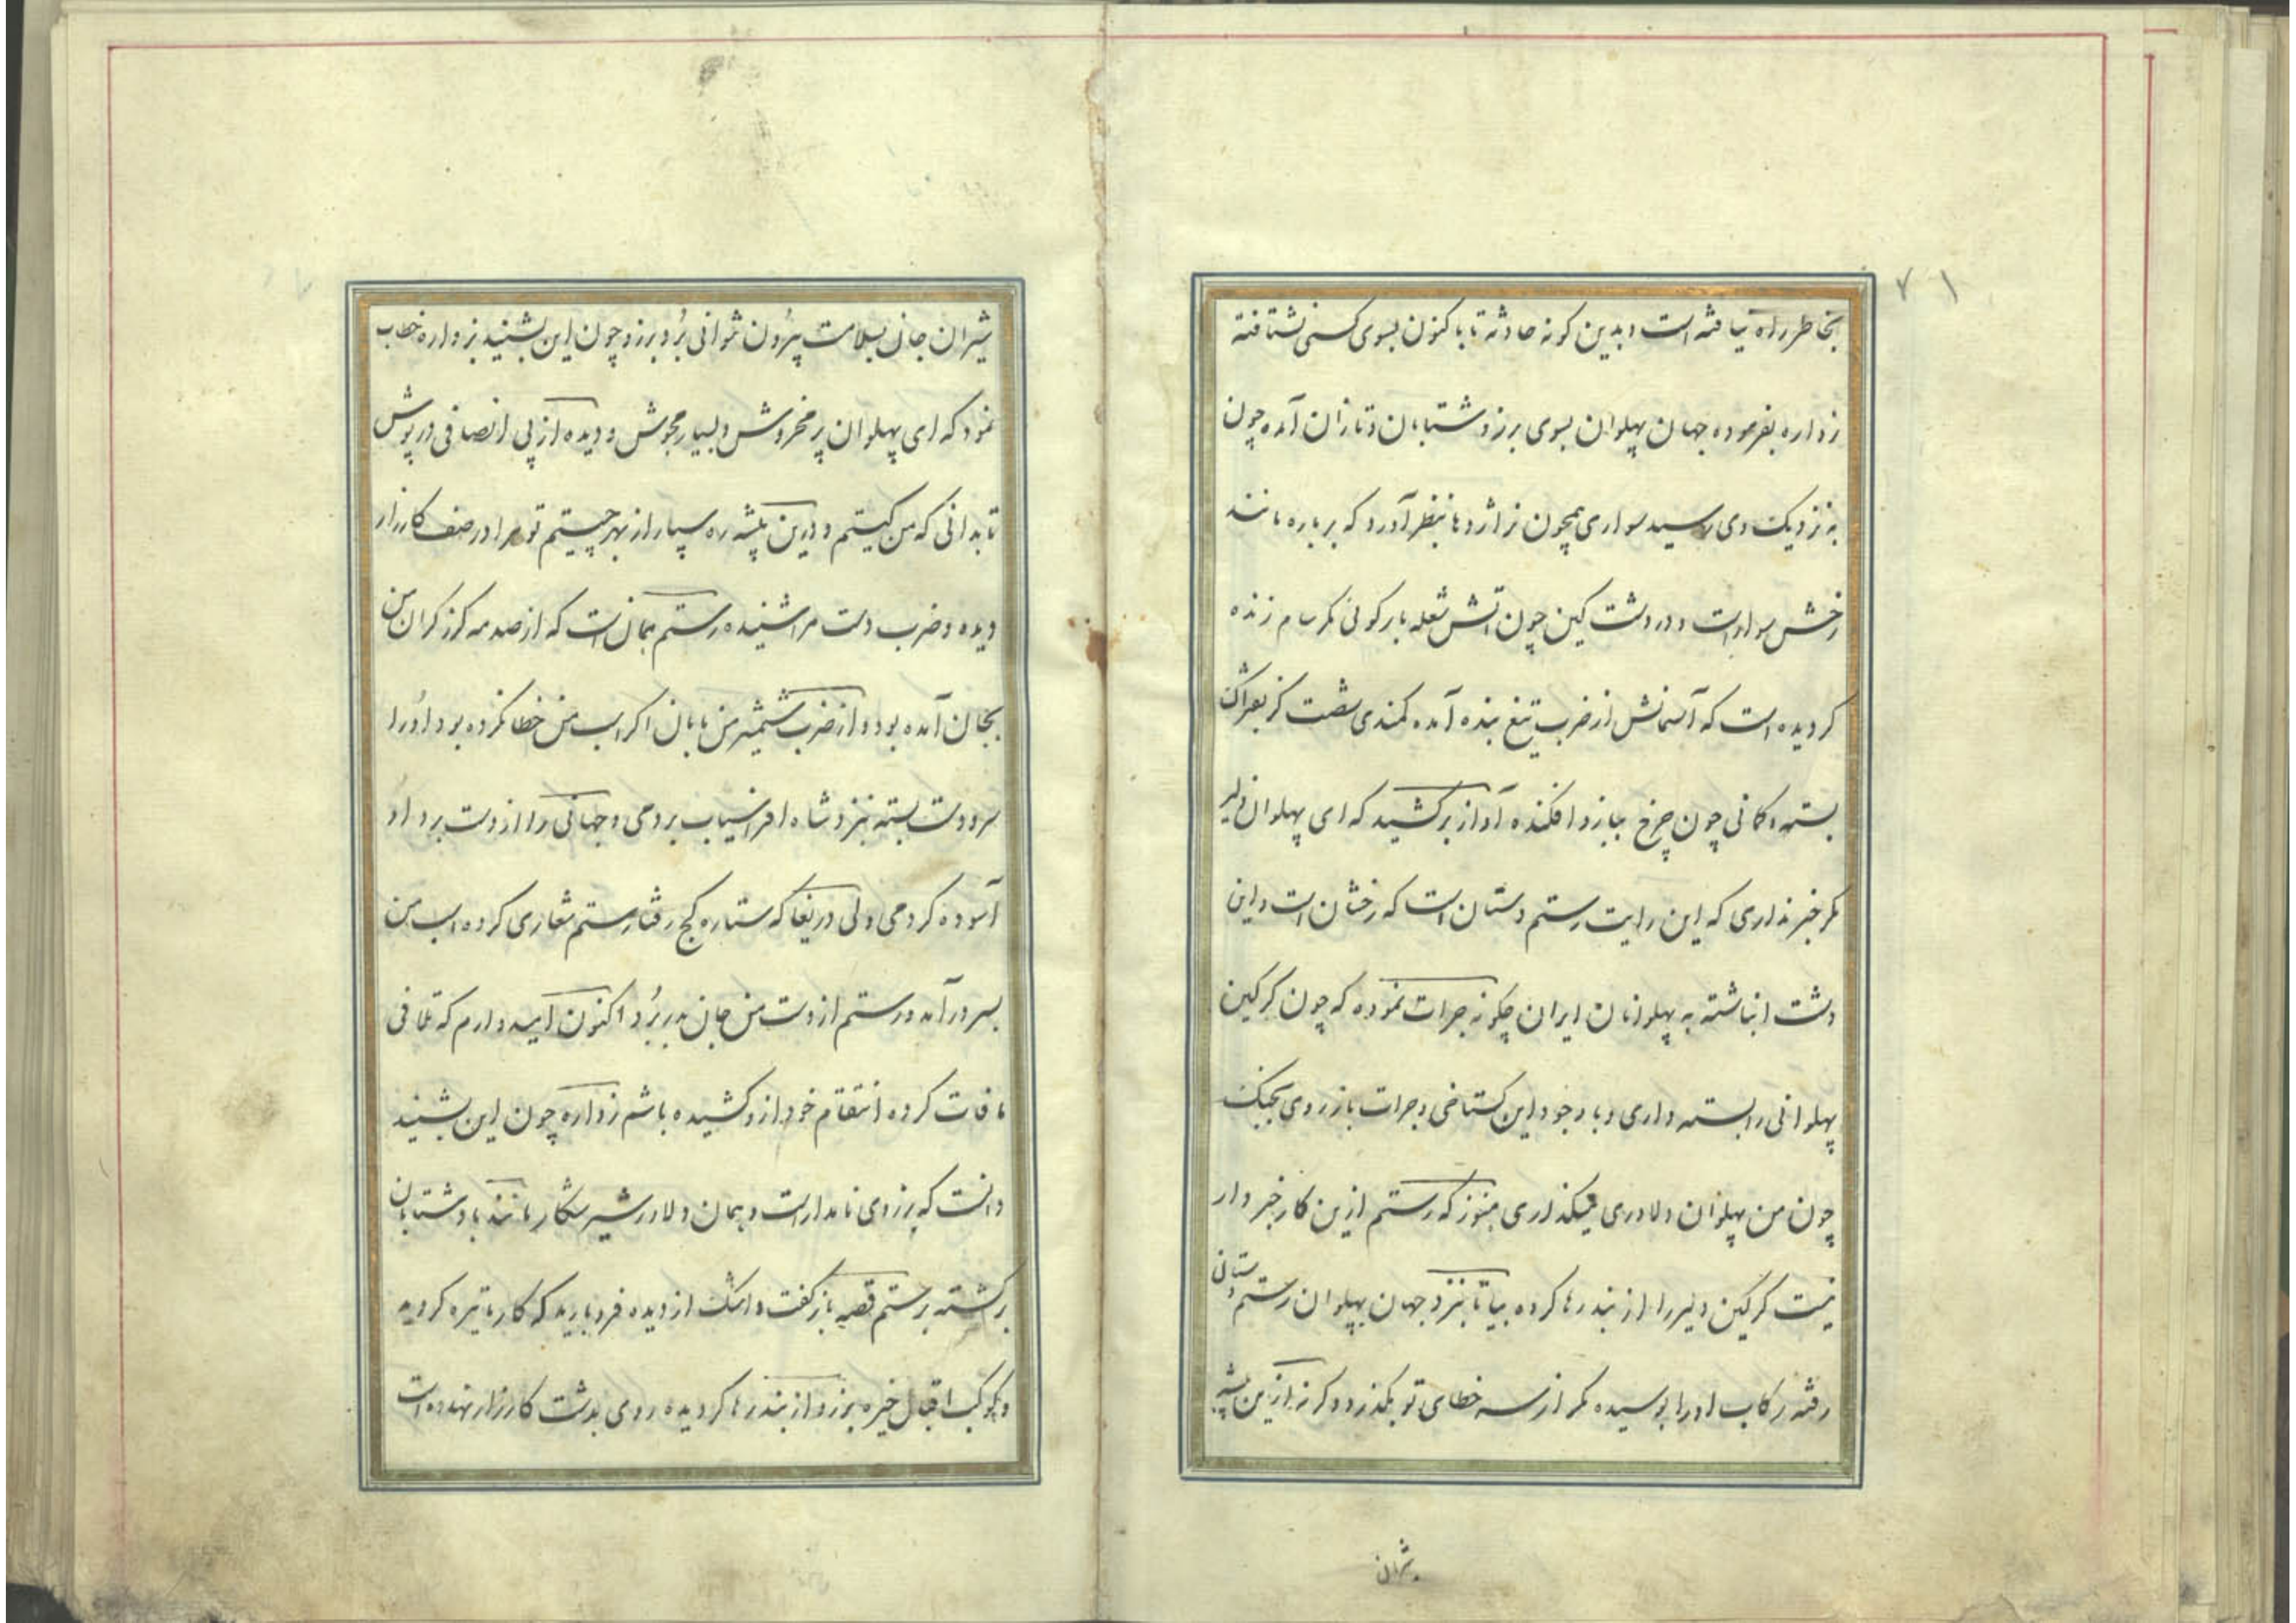 ۷۱
بخاطر راه نیافته است و بدین گونه حادثه تا باکنون بسوی کسی نشتافته
زواره بفرموده جهان پهلوان بسوی برزو شتابان و تازان آمده چون
به نزدیک وی رسید سواری همچون نر اژدها بنظر آورد که بر باره مانند
رخش سوار است و در دشت کین چون آتش شعله بار گوئی مگر سام زنده
کردیده است که آسمانش از ضرب تیغ بنده آمده کمندی شصت کز بفتراک
بسته و کمانی چون چرخ ببازو افکنده آواز برکشید که ای پهلوان دلیر
مکر خبر نداری که این رایت رستم دستان است که رخشان است و این
دشت انباشته به پهلوانان ایران چکونه جرات نموده که چون کرکین
پهلوانی را بسته داری و با وجود این کستاخی و جرات باز روی بجنک
چون من پهلوان دلاوری میکذاری هنوز که رستم ازین کار خبر دار
نیست کرکین دلیر را از بند رها کرده بیا تا بنزد جهان پهلوان رستم دستانی
رفته رکاب او را بوسیده مکر از سر خطای تو بگذرد و کرنه ازین بیشه
شیران
شیران جان بسلامت بیرون نتوانی برد برزو چون این بشنید بزواره خطاب
نمود که ای پهلوان پر مخروش و بسیار مجوش و دیده از بی انصافی در پوش
تا بدانی که من کیستم و درین بیشه ره سپار از بهر چیستم تو مرا در صف کارزار
دیده و ضرب دست مرا شنیده رستم همان است که از صدمه کرز کران من
بجان آمده بود و از ضرب شمشیر من بابان اکر اسب من خطا نکرده بود او را
سر و دست بسته بنزد شاه افراسیاب بردمی و جهانی را از دست برد او
آسوده کردمی ولی دریغا که ستاره کج رفتار ستم شعاری کرده اسب من
بسر در آمد و رستم از دست من جان بدر برد اکنون امیدوارم که تلافی
مافات کرده انتقام خود ازو کشیده باشم زواره چون این بشنید
دانست که برزوی نامدار است و همان دلاور شیر شکار مانند باد شتابان
برکشته برستم قصه باز گفت و اشک از دیده فرو بارید که کار ما تیره کردید
و کوکب اقبال خیره برزو از بند رها کردیده روی بدشت کارزار نهاده است